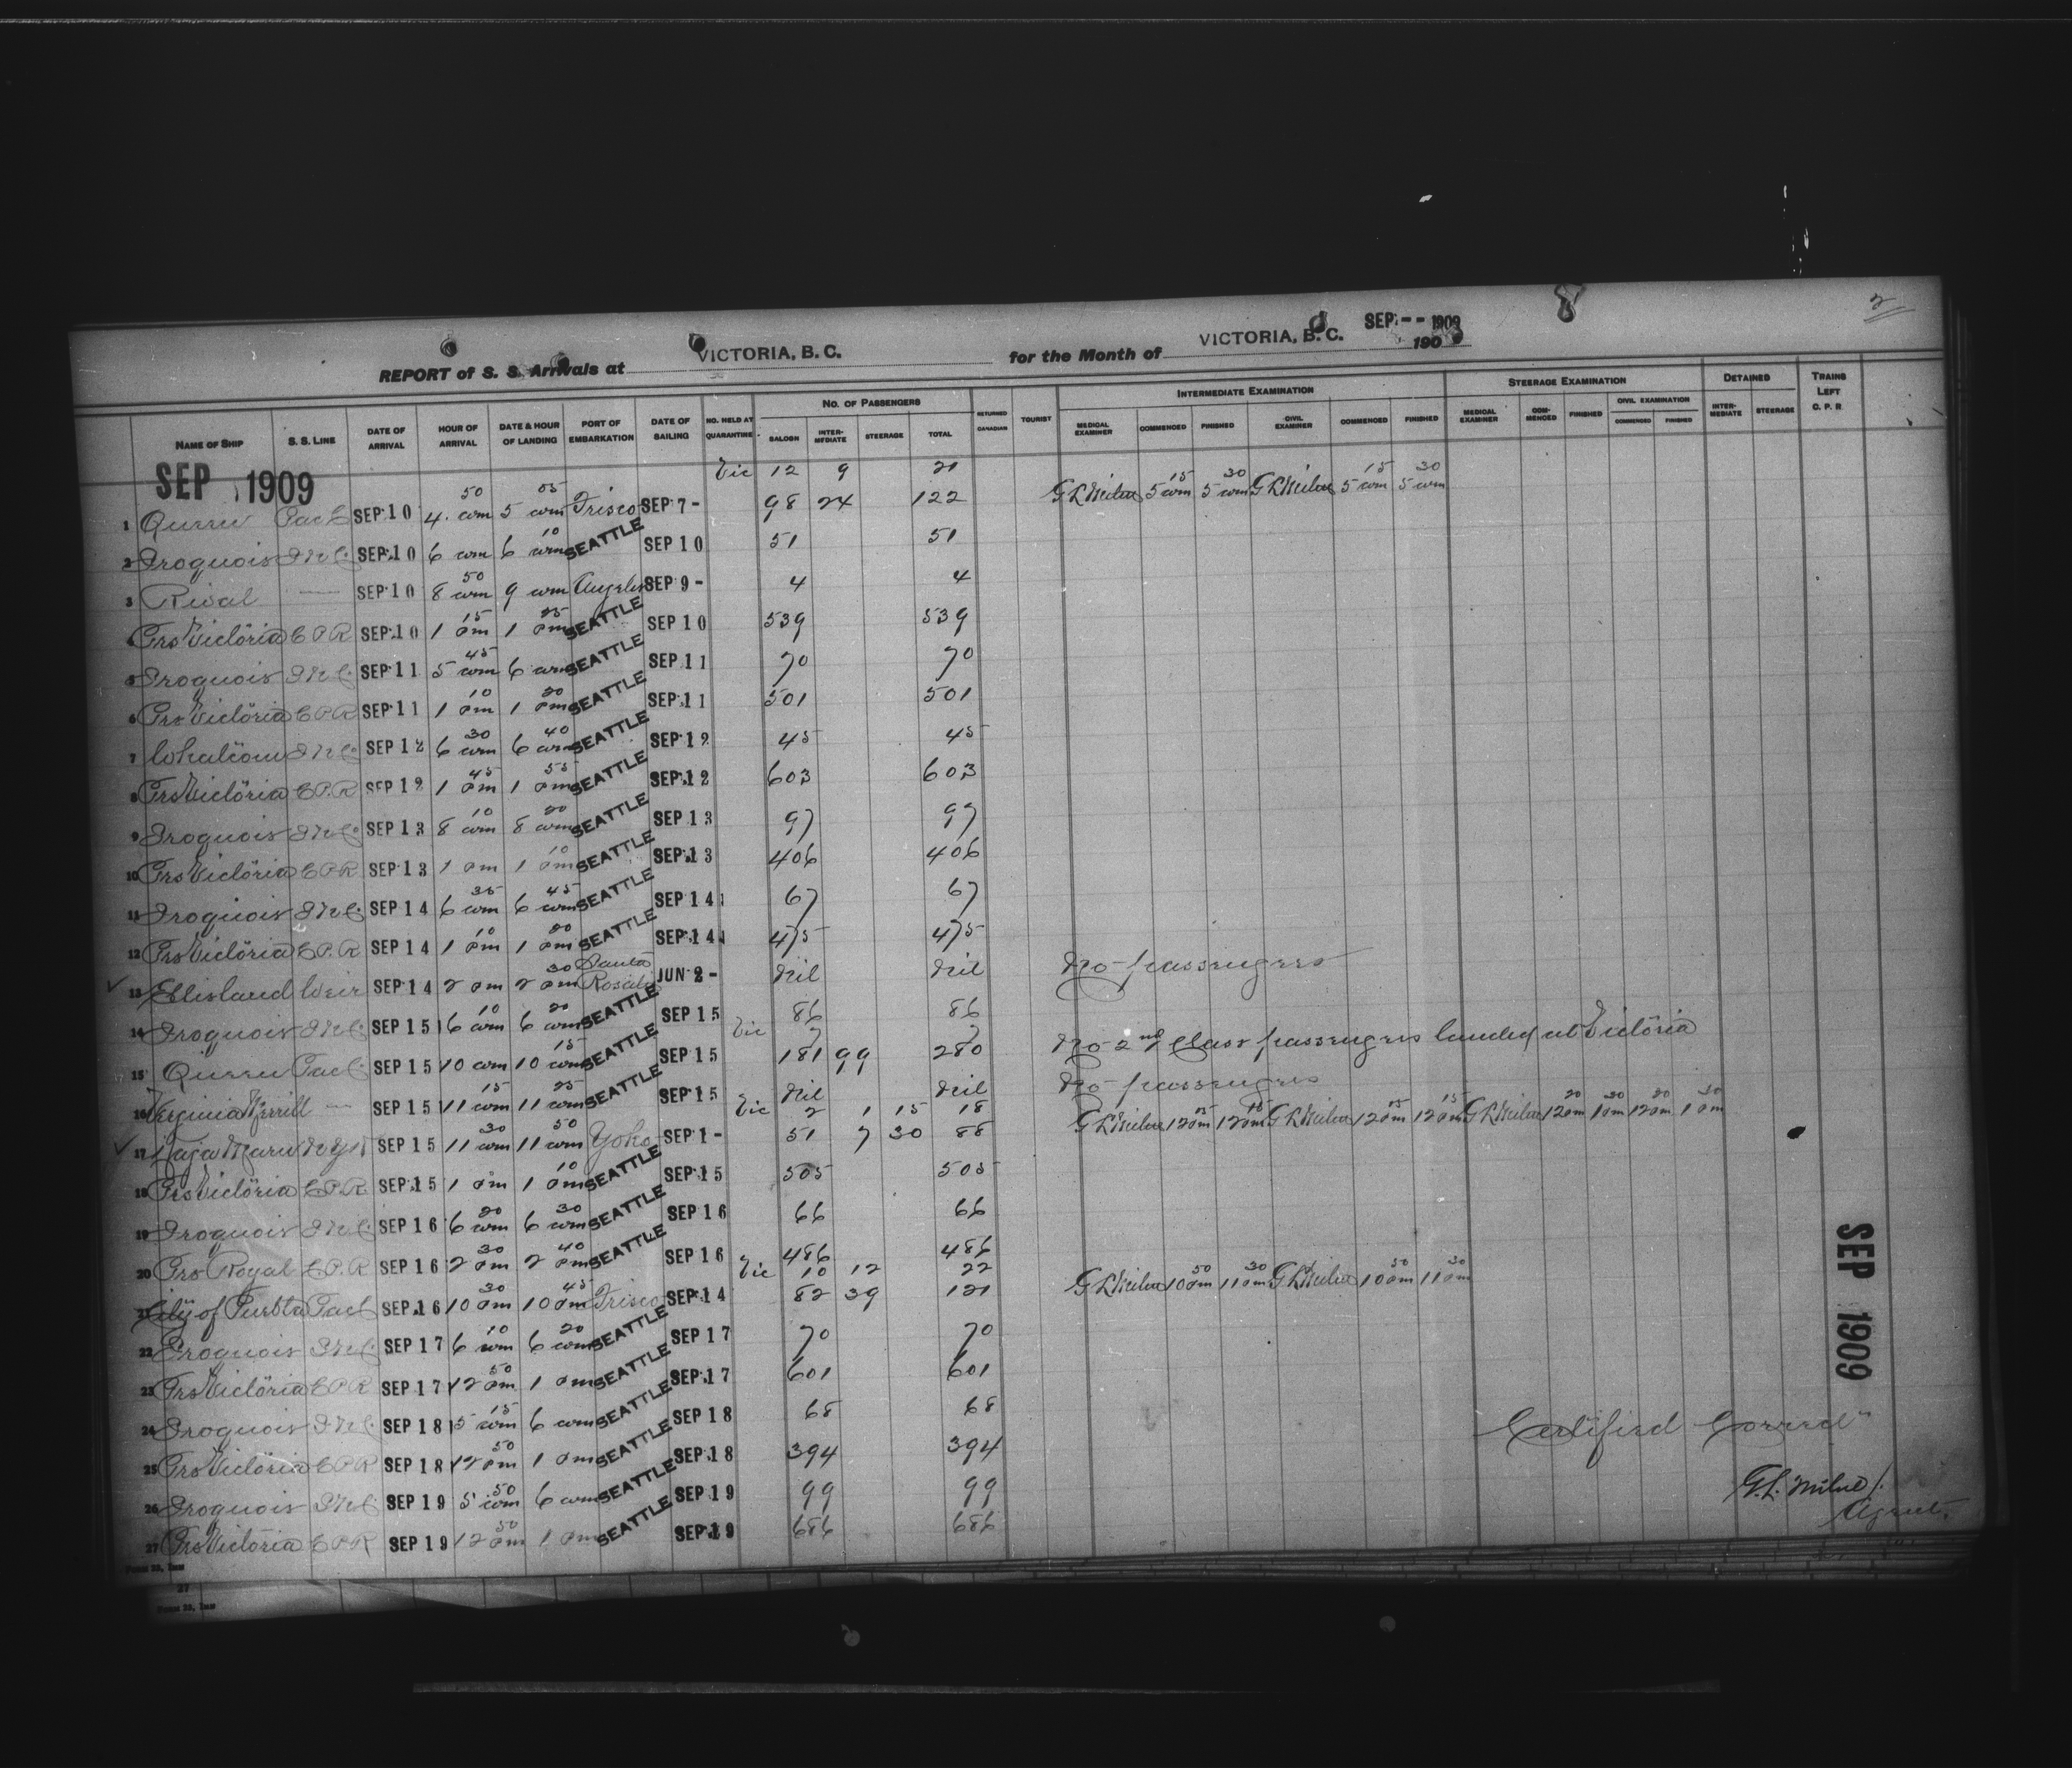 2
REPORT of S. S. Arrivals at VICTORIA, B. C. for the Month of VICTORIA, B. C. SEP -- 1909 190
NAME OF SHIP S. S. LINE DATE OF ARRIVAL HOUR OF ARRIVAL DATE & HOUR OF LANDING PORT OF EMBARKATION DATE OF SAILING NO. HELD AT QUARANTINE NO. OF PASSENGERS SALOON INTERMEDIATE STEERAGE TOTAL RETURNED CANADIAN TOURIST INTERMEDIATE EXAMINATION MEDICAL EXAMINER COMMENCED FINISHED CIVIL EXAMINER COMMENCED FINISHED STEERAGE EXAMINATION MEDICAL EXAMINER COMMENCED FINISHED CIVIL EXAMINATION COMMENCED FINISHED DETAINED INTERMEDIATE STEERAGE TRAINS LEFT C. P. R.
SEP 1909
Vic 12 9 21
1 Queen Pac C SEP 10 4 50 am 5 05 am Frisco SEP 7- 98 24 122 G L Milne 5 15 am 5 30 am G L Milne 5 15 am 5 30 am
2 Iroquois I N C SEP 10 6 am 6 10 am SEATTLE SEP 10 51 51
3 Rival — SEP 10 8 50 am 9 am Angeles SEP 9- 4 4
4 Prs Victoria C P R SEP 10 1 15 pm 1 25 pm SEATTLE SEP 10 539 539
5 Iroquois I N C SEP 11 5 45 am 6 am SEATTLE SEP 11 70 70
6 Prs Victoria C P R SEP 11 1 10 pm 1 20 pm SEATTLE SEP 11 501 501
7 Whatcom I N C SEP 12 6 30 am 6 40 am SEATTLE SEP 12 45 45
8 Prs Victoria C P R SEP 12 1 45 pm 1 55 pm SEATTLE SEP 12 603 603
9 Iroquois I N C SEP 13 8 10 am 8 20 am SEATTLE SEP 13 97 97
10 Prs Victoria C P R SEP 13 1 pm 1 10 pm SEATTLE SEP 13 406 406
11 Iroquois I N C SEP 14 6 35 am 6 45 am SEATTLE SEP 14 67 67
12 Prs Victoria C P R SEP 14 1 10 pm 1 20 pm SEATTLE SEP 14 475 475
13 Ellisland Weir SEP 14 2 pm 2 30 pm Santa Rosalia JUN 2- Nil Nil No passengers
14 Iroquois I N C SEP 15 6 10 am 6 20 am SEATTLE SEP 15 86 86
Vic 7 7
15 Queen Pac C SEP 15 10 am 10 15 am SEATTLE SEP 15 181 99 280 No 2nd class passengers landed at Victoria
16 Virginia Merrill — SEP 15 11 15 am 11 25 am SEATTLE SEP 15 Nil Nil No passengers
Vic 2 1 15 18
17 Kaga Maru N Y K SEP 15 11 30 am 11 50 am Yoko SEP 1- 51 7 30 88 G L Milne 12 pm 12 15 pm G L Milne 12 pm 12 15 pm G L Milne 12 20 pm 1 30 pm 12 20 pm 1 30 pm
18 Prs Victoria C P R SEP 15 1 pm 1 10 pm SEATTLE SEP 15 505 505
19 Iroquois I N C SEP 16 6 20 am 6 30 am SEATTLE SEP 16 66 66
20 Prs Royal C P R SEP 16 2 30 pm 2 40 pm SEATTLE SEP 16 486 486
Vic 10 12 22
21 City of Puebla Pac C SEP 16 10 30 pm 10 45 pm Frisco SEP 14 82 39 121 G L Milne 10 50 pm 11 30 pm G L Milne 10 50 pm 11 30 pm
22 Iroquois I N C SEP 17 6 10 am 6 20 am SEATTLE SEP 17 70 70
23 Prs Victoria C P R SEP 17 12 50 pm 1 pm SEATTLE SEP 17 601 601
24 Iroquois I N C SEP 18 5 15 am 6 am SEATTLE SEP 18 68 68
25 Prs Victoria C P R SEP 18 12 50 pm 1 pm SEATTLE SEP 18 394 394
26 Iroquois I N C SEP 19 5 50 am 6 am SEATTLE SEP 19 99 99
27 Prs Victoria C P R SEP 19 12 50 pm 1 pm SEATTLE SEP 19 686 686
SEP 1909
Certified Correct
G. L. Milne
Agent.
27